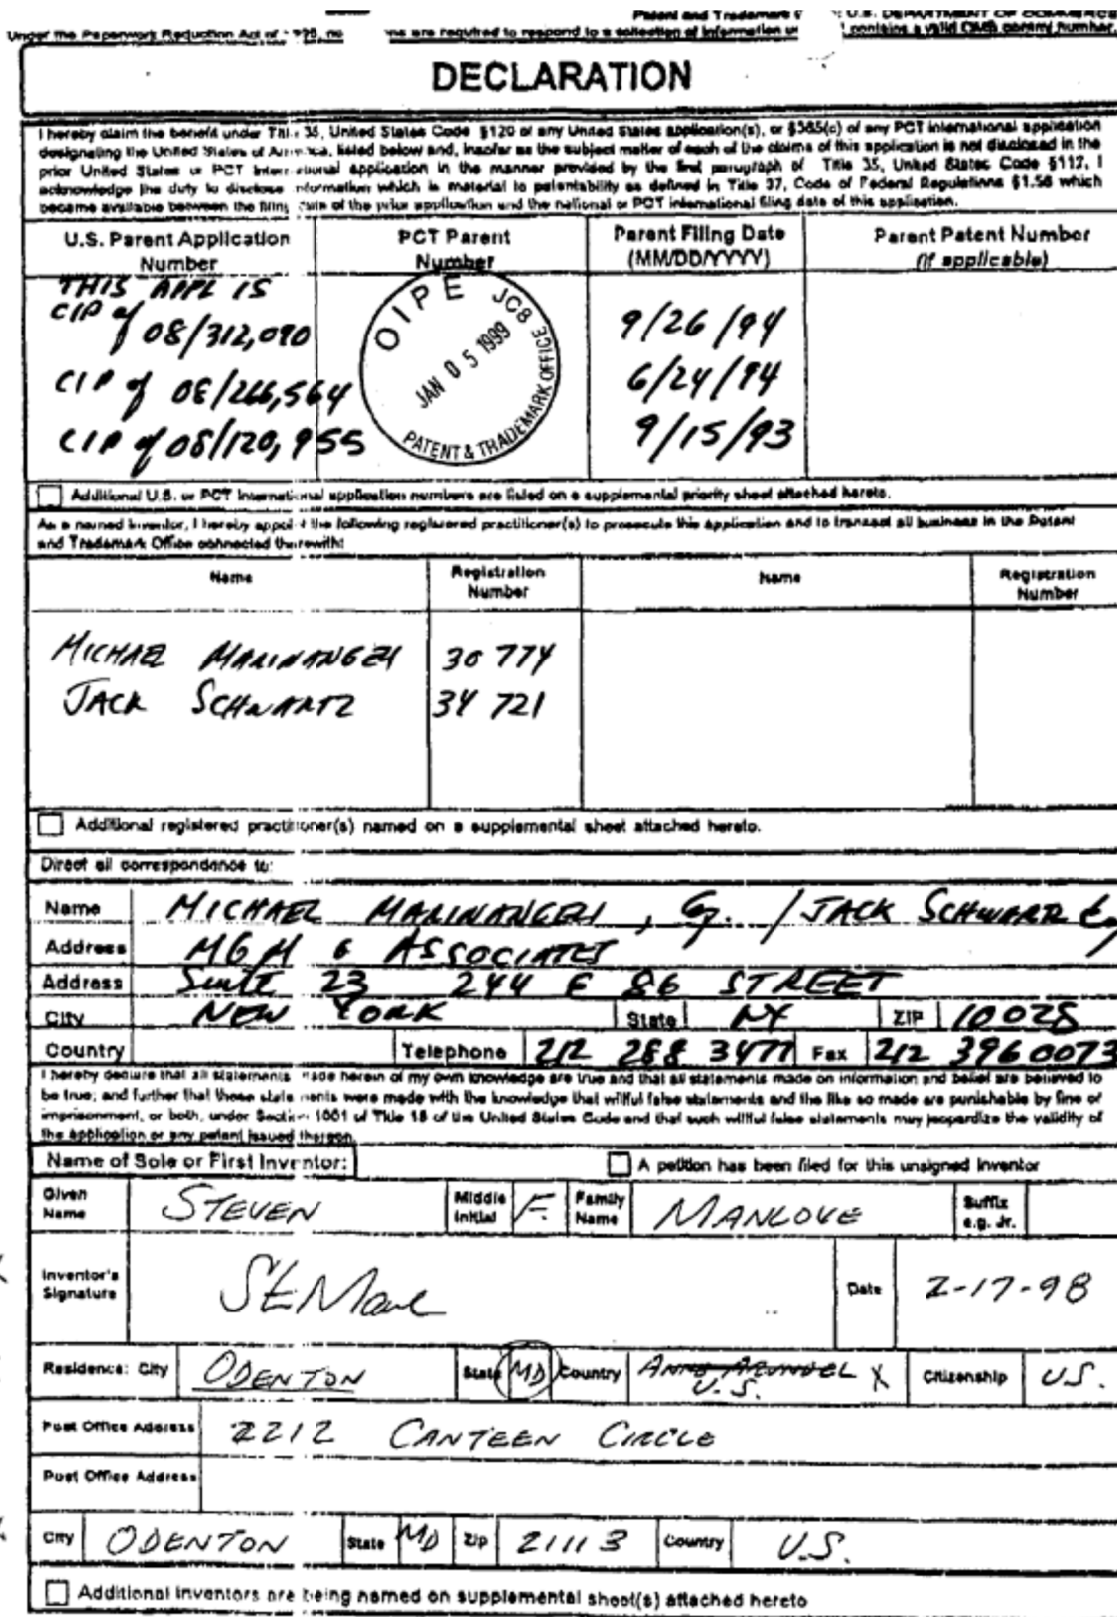 Patent and Trademark U.S. DEPARTMENT OF COMMERCE
Under the Paperwork Reduction Act of 1995, no are required to respond to a collection of information contains a valid OMB control number.
DECLARATION
I hereby claim the benefit under Title 35, United States Code §120 of any United States application(s), or §365(c) of any PCT international application
designating the United States of America, listed below and, insofar as the subject matter of each of the claims of this application is not disclosed in the
prior United States or PCT International application in the manner provided by the first paragraph of Title 35, United States Code §112, I
acknowledge the duty to disclose information which is material to patentability as defined in Title 37, Code of Federal Regulations §1.56 which
became available between the filing date of the prior application and the national or PCT international filing date of this application.
U.S. Parent Application Number
PCT Parent Number
Parent Filing Date (MM/DD/YYYY)
Parent Patent Number (if applicable)
THIS APPL IS
CIP of 08/312,090 9/26/94
CIP of 08/266,564 6/24/94
CIP of 08/120,955 9/15/93
OIPE JC8
JAN 05 1999
PATENT & TRADEMARK OFFICE
Additional U.S. or PCT International application numbers are listed on a supplemental priority sheet attached hereto.
As a named inventor, I hereby appoint the following registered practitioner(s) to prosecute this application and to transact all business in the Patent
and Trademark Office connected therewith:
Name Registration Number Name Registration Number
MICHAEL MARINANGELI 30 774
JACK SCHWARTZ 34 721
Additional registered practitioner(s) named on a supplemental sheet attached hereto.
Direct all correspondence to:
Name MICHAEL MARINANGELI, / JACK SCHWARTZ
Address MGM & ASSOCIATES
Address Suite 23 244 E 86 STREET
City NEW YORK State NY ZIP 10028
Country Telephone 212 288 3477 Fax 212 396 0073
I hereby declare that all statements made herein of my own knowledge are true and that all statements made on information and belief are believed to
be true; and further that these statements were made with the knowledge that willful false statements and the like so made are punishable by fine or
imprisonment, or both, under Section 1001 of Title 18 of the United States Code and that such willful false statements may jeopardize the validity of
the application or any patent issued thereon.
Name of Sole or First Inventor: A petition has been filed for this unsigned inventor
Given Name STEVEN Middle Initial F. Family Name MANLOVE Suffix e.g. Jr.
Inventor's Signature Date 2-17-98
Residence: City ODENTON State MD Country ANNE ARUNDEL X U.S. Citizenship U.S.
Post Office Address 2212 CANTEEN CIRCLE
Post Office Address
City ODENTON State MD Zip 21113 Country U.S.
Additional inventors are being named on supplemental sheet(s) attached hereto